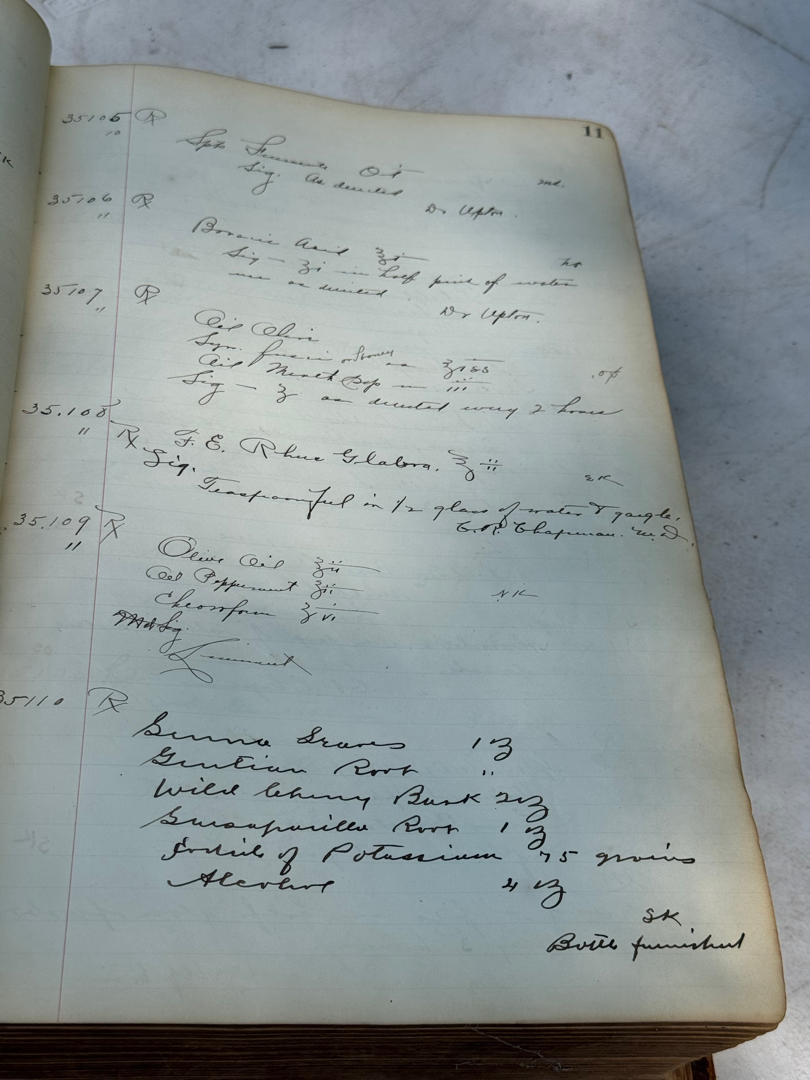 11
35105 ℞
10
Spts Frumenti Oi
Sig. As directed
Dr Upton.
35106 ℞
"
Boracic Acid ℥i
Sig — ʒi in half pint of water
use as directed
Dr Upton.
35107 ℞
"
Oil Olive
Syr. fusci or Honey aa ℥iss
Oil Menth Pip m iii
Sig — ʒ as directed every 2 hours
35.108 ℞
"
F. E. Rhus Glabra. ℥ii
SK
Sig.
Teaspoonful in 1/2 glass of water & gargle.
C.R. Chapman. M.D.
35.109 ℞
"
Olive Oil ℥ii
Oil Peppermint ʒii
SK
Chloroform ʒvi
Md Sig.
Liniment
35110 ℞
Senna Leaves 1 ℥
Gentian Root "
Wild Cherry Bark 2 ℥
Sarsaparilla Root 1 ℥
Iodide of Potassium 75 grains
Alcohol 4 ℥
SK
Bottle furnished